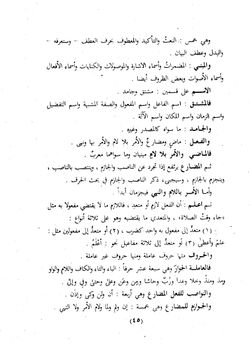 وهي خمس : النعتُ والتأكيد والمعطوف بحرف العطف – وستعرفه –
والبدل وعطف البيان .
والمبني : المضمرات وأسماء الاشارة والموصولات والكنايات وأسماء الأفعال
وأسماء الأصوات وبعض الظروف أيضا .
الاسم على قسمين : مشتق وجامد .
فالمشتق : اسم الفاعل واسم المفعول والصفة المشبهة واسم التفضيل
واسم الزمان واسم المكان واسم الآلة .
والجامد : ما سواه كالمصدر وغيره .
والفعل : ماض ومضارع والأمر بلا لام والأمر بها ونهى .
فالماضي والأمر بلا لام مبنيان وما سواهما معرب .
ثم المضارع يرتفع إذا تجرد عن الناصب والجازم ، وينتصب بالناصب ،
وينجزم بالجازم ، وسيجيء ذكر الناصب والجازم في بحث الحرف .
وأما الأمر باللام والنهي فيجزمان أبداً .
ثم اعلم : أن الفعل لازم أو متعد ، فاللازم ما لا يقتضي مفعولا به مثل
«جاء وقت الصلاة» ، والمتعدي ما يقتضيه وهو على ثلاثة أنواع :
(١) متعد إلى مفعول به واحد كضرب ، (٢) أو متعد إلى مفعولين مثل :
علم وأعطى (٣) أو متعد إلى ثلاثة مفاعيل نحو : أعلم .
والحروف منها حروف عاملة ومنها حروف غير عاملة .
فالعاملة الجوار وهي سبعة عشر حرفا : الباء والتاء والكاف واللام والواو
ومذ ومنذ وخلا وعدا وربّ وحاشا ومن وعن وعلى وحتى وفي وإلى .
والنواصب للفعل المضارع وهي أربعة : أن ولن وكي وإذن .
والجوازم للمضارع وهي خمسة : إن ولم ولما ولام الأمر ولا النهي .
(٤٥)